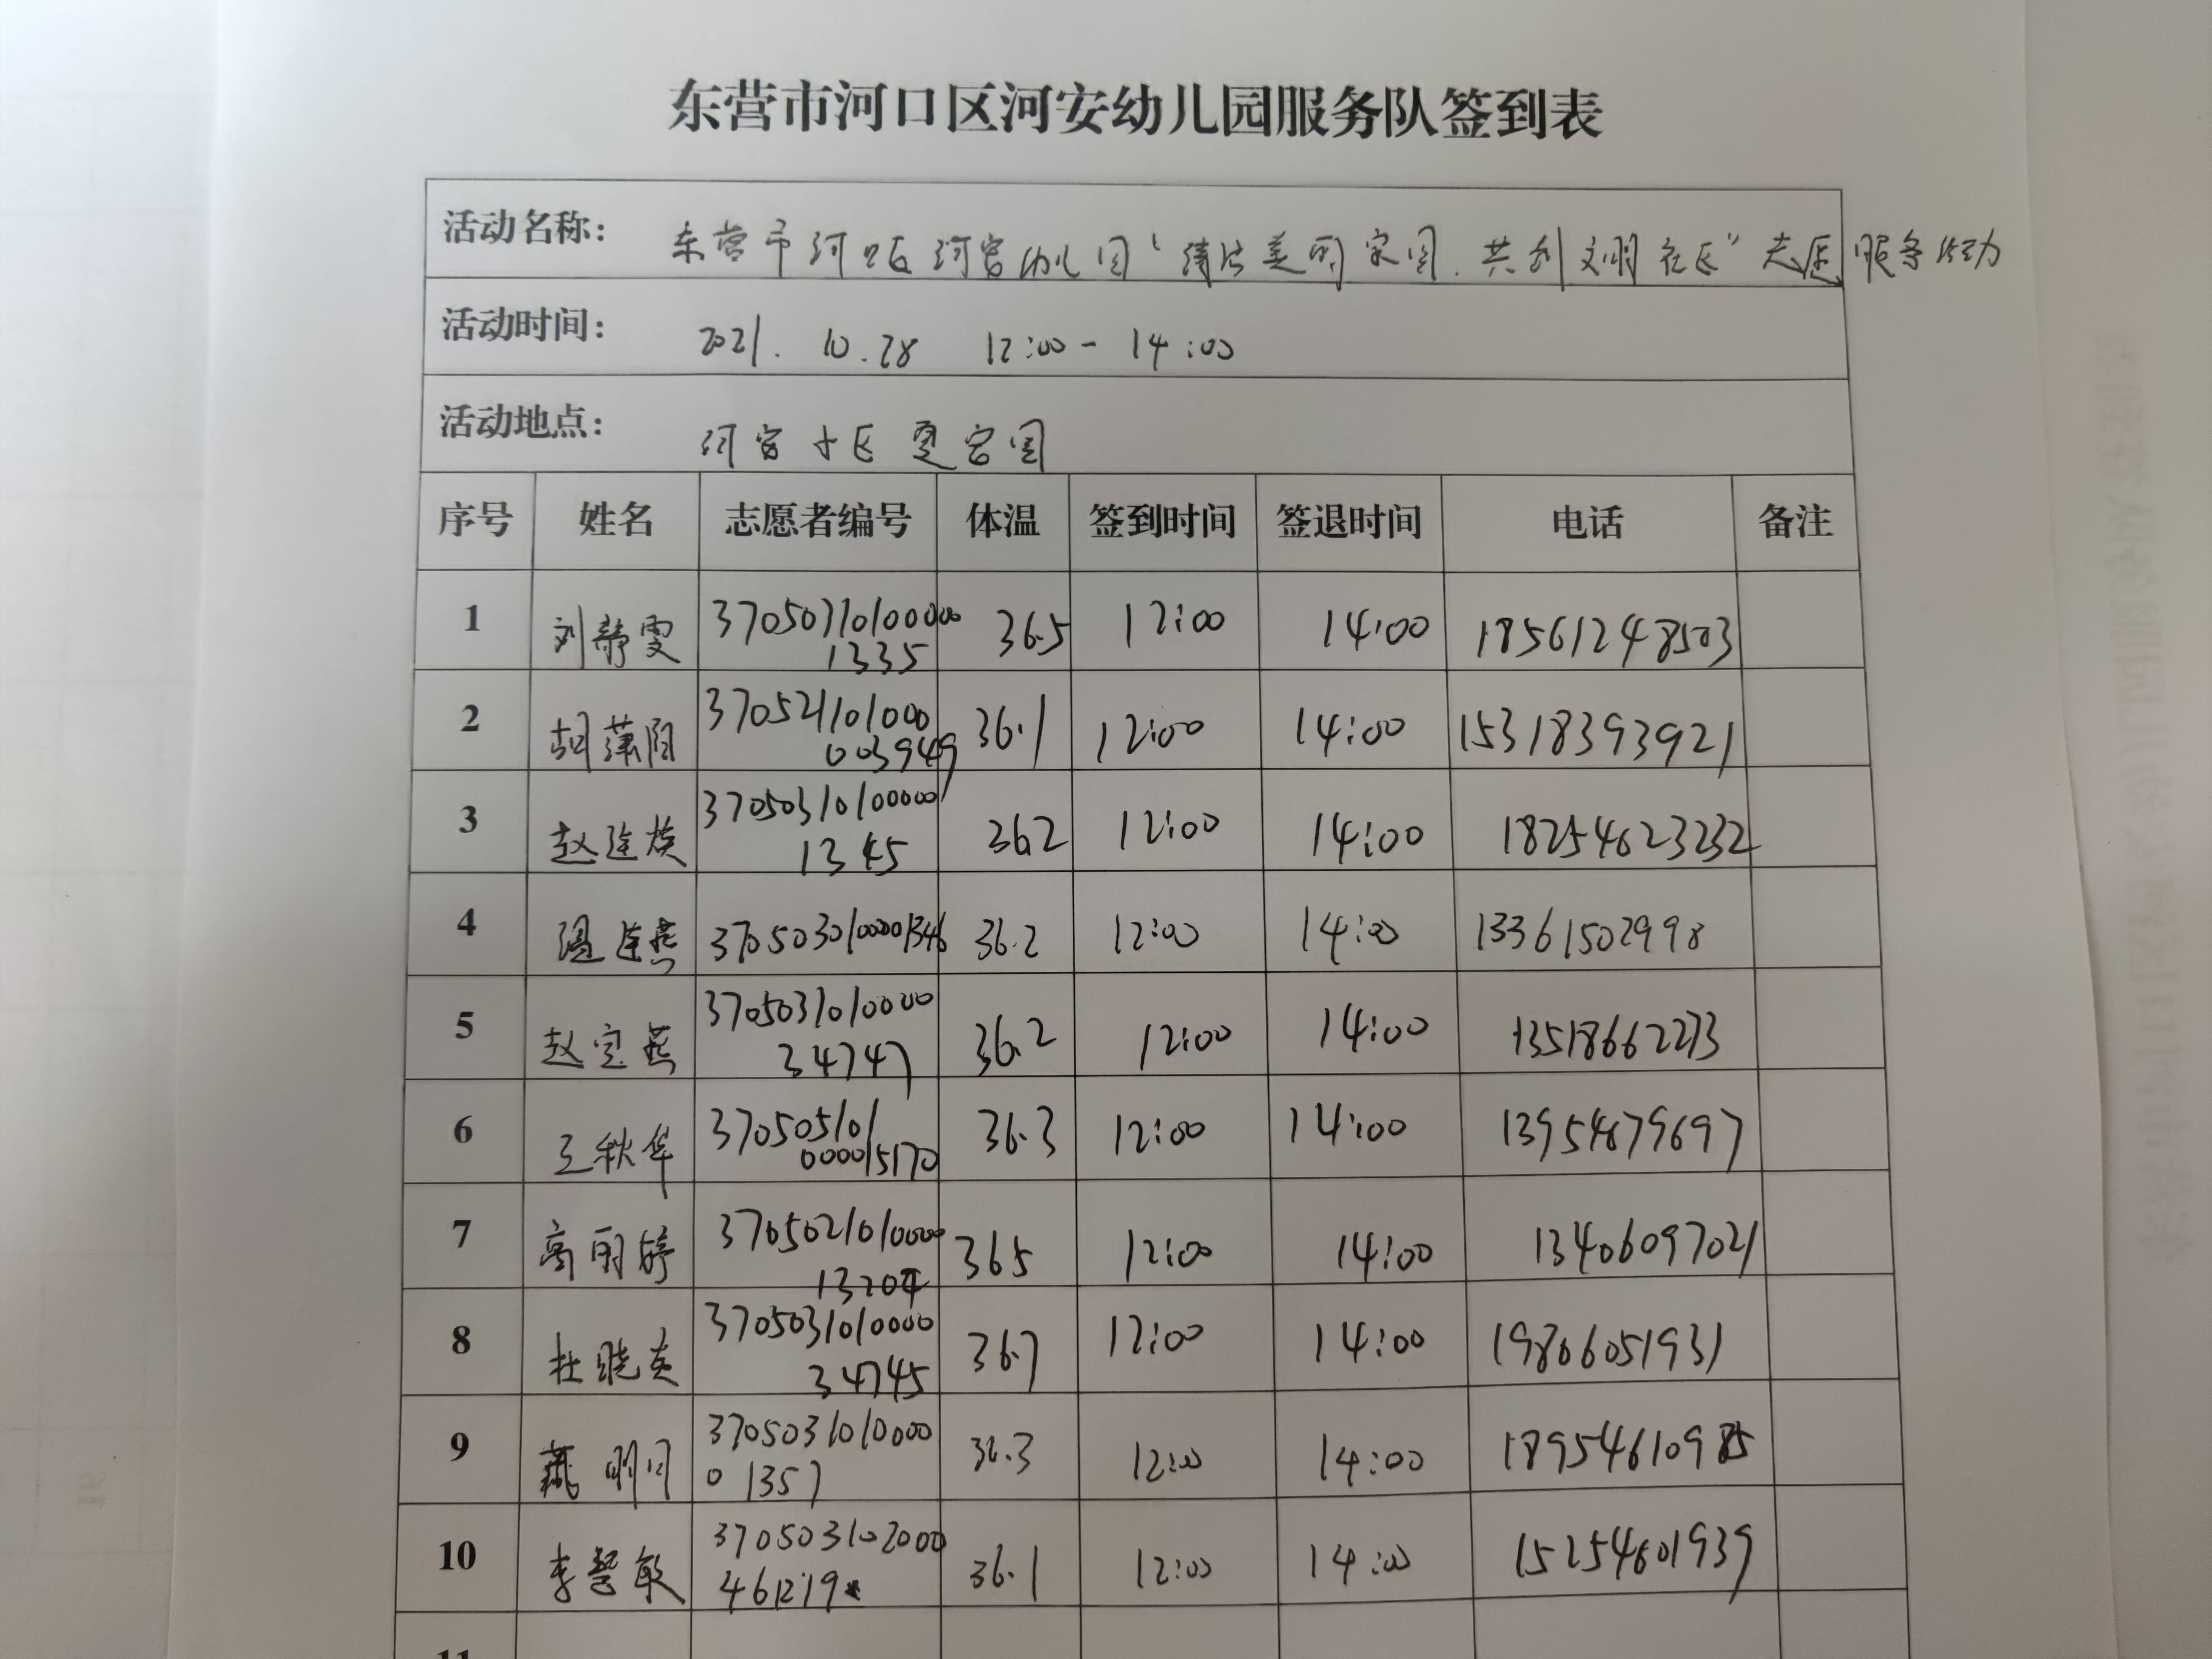 东营市河口区河安幼儿园服务队签到表
活动名称： 东营市河口区河安幼儿园“清洁美丽家园.共创文明社区”志愿服务活动
活动时间： 2021. 10.28 12:00- 14:00
活动地点： 河安小区 宜安园
序号 姓名 志愿者编号 体温 签到时间 签退时间 电话 备注
1 刘静雯 37050310100000 36.5 12:00 14:00 18561248503
1335
2 胡 370521101000 36.1 12:00 14:00 15318393921
003949
3 赵连焕 37050310100000 36.2 12:00 14:00 18254623232
1345
4 温连燕 3705030100001346 36.2 12:00 14:00 13361502998
5 赵宝燕 3705031010000 36.2 12:00 14:00 13518662273
34747
6 王秋华 370505101 36.3 12:00 14:00 13954679697
000015170
7 高丽婷 3705021010000 365 12:00 14:00 13406097021
13204
8 杜晓英 3705031010000 36.7 12:00 14:00 19866051931
34745
9 明月 3705031010000 36.3 12:00 14:00 18954610985
01357
10 李慧敏 3705031020000 36.1 12:00 14:00 15254601939
461219
11